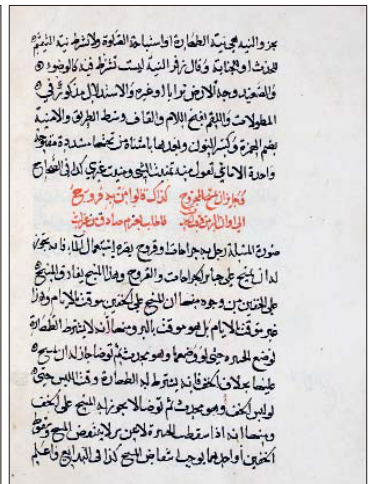 يجزو النية هي نية الطهارة او استباحة الصلوة ولا تشترط نية التيمم
للحدث او الجنابة وقال زفر النية ليست بشرط فيه كالوضوء
والصعيد وجه الارض ترابا او غيره والاستدلال مذكور في
المطولات واللقم بفتح اللام والقاف وسط الطريق والامنية
بضم الهمزة وكسر النون وبعدها ياء مثناة من تحتها مشددة مفتوحة
واحدة الاماني تقول منه تمنيت الشي ومنيت غيري كذا في الصحاح
كذاك قالوا
فاطلب بعزم صادق
صورة المسئلة رجل به جراحات وقروح يضره استعمال الماء فانه يجوز
له ان يمسح على جبائر الجراحات والقروح وهذا المسح يفارق المسح
على الخفين من وجوه منها ان المسح على الخفين موقت بالايام وهذا
غير موقت بالايام بل هو موقت بالبرء ومنها انه لا تشترط الطهارة
لوضع الجبيرة حتى لو وضعها وهو محدث ثم توضا جاز له ان يمسح
عليها بخلاف الخف فانه يشترط له الطهارة وقت اللبس حتى
لو لبس الخف وهو محدث ثم توضا لا يجوز له المسح على الخف
ومنها انه اذا سقطت الجبيرة لا عن برء لا ينتقض المسح وسقوط
الخفين او احدهما يوجب انتقاض المسح كذا في البدايع واعلم